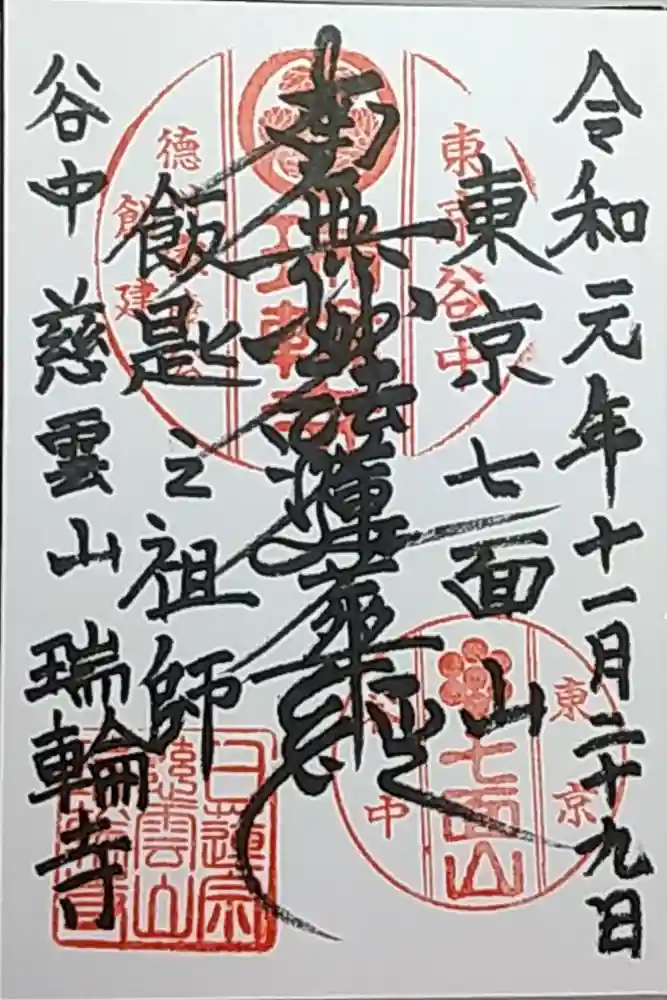 令和元年十一月二十九日
東京七面山
南無妙法蓮華経
飯匙之祖師
谷中 慈雲山 瑞輪寺
東京谷中
德
創建
東京
七面山
谷中
日蓮宗
慈雲山